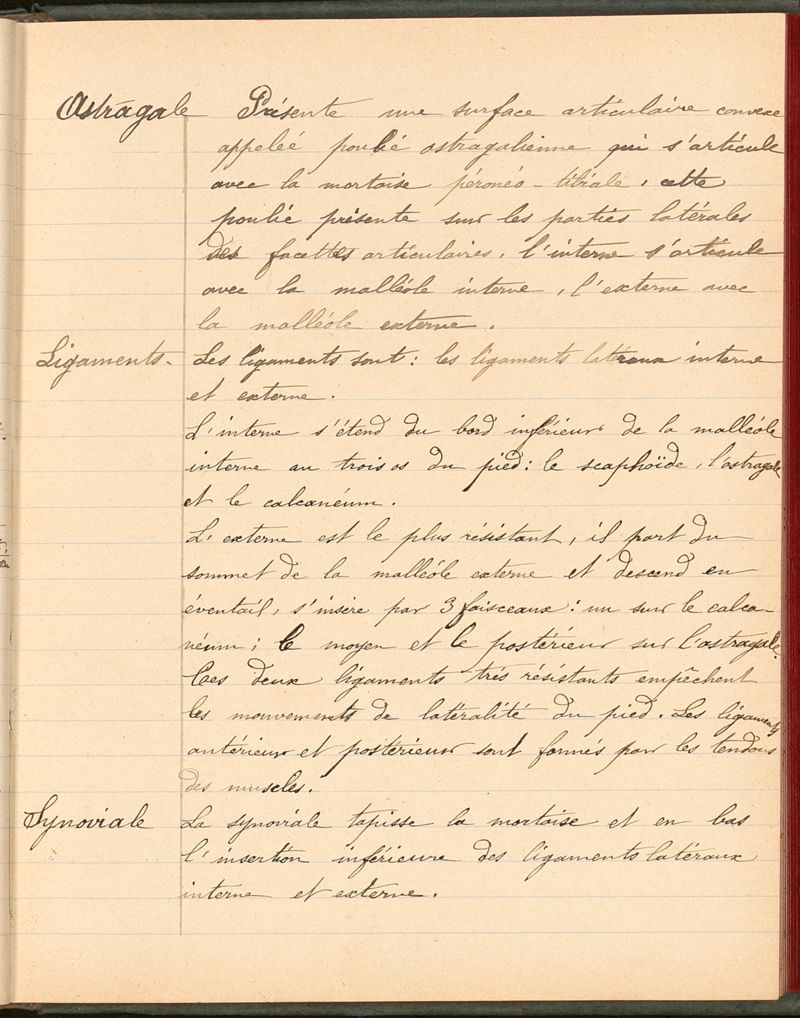 Astragale Présente une surface articulaire convexe
appeleé poulié astragalienne qui s'articule
avec la mortaise péronéo-tibiale, cette
poulié présente sur les partiés latérales
des facettes articulaires, l'interne s'articule
avec la malléole interne, l'externe avec
la malléole externe.
Ligaments - Les ligaments sont : les ligaments latéraux interne
et externe.
L'interne s'étend du bord inférieur de la malléole
interne au trois os du pied : le scaphoïde, l'astragale
et le calcanéum.
L'externe est le plus résistant, il part du
sommet de la malléole externe et descend en
éventail, s'insère par 3 faisceaux : un sur le calca-
néum ; le moyen et le postérieur sur l'astragale.
Ces deux ligaments très résistants empêchent
les mouvements de latéralité du pied. Les ligaments
antérieur et postérieur sont formés par les tendons
des muscles.
Synoviale La synoviale tapisse la mortaise et en bas
l'insertion inférieure des ligaments latéraux
interne et externe.